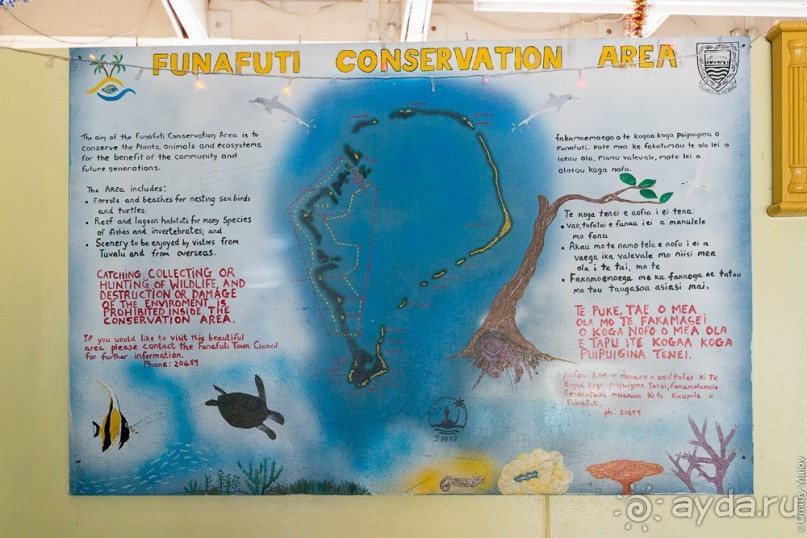 FUNAFUTI CONSERVATION AREA
The aim of the Funafuti Conservation Area is to
conserve the Plants, animals and ecosystems
for the benefit of the community and
future generations.
The Area includes:
• Forests and beaches for nesting sea birds
and turtles;
• Reef and lagoon habitats for many Species
of fishes and invertebrates; and
• Scenery to be enjoyed by vistors from
Tuvalu and from overseas.
CATCHING, COLLECTING OR
HUNTING OF WILDLIFE, AND
DESTRUCTION OR DAMAGE
OF THE ENVIROMENT, IS
PROHIBITED INSIDE THE
CONSERVATION AREA.
If you would like to visit this beautiful
area please contact the Funafuti Town Council
for further information.
Phone: 20489
fakamoemoega o te kogaa koga puipuigina o
Funafuti. Kote mea ke fakatumau te ola lei o
lakau ola, manu valevale, mote lei o
olatou koga nofo.
Te koga tenei e aofia i ei tena:
• vao, tafatai e fanau i ei a manulele
mo fonu
• Akau mo te namo tela e nofo i ei a
vaega ika valevale mo niisi mea
ola i te tai, mo te
• Fakamoemoega me ka faknoga ne tatou
mo tou taugasoa asiasi mai.
TE PUKE, TAE O MEA
OLA MO TE FAKAMASEI
O KOGA NOFO O MEA OLA
E TAPU ITE KOGAA KOGA
PUIPUIGINA TENEI.
koga puipuigina tenei,
Funafuti.
ph: 20489
SPREP
© Dmitry Malov
ayda.ru